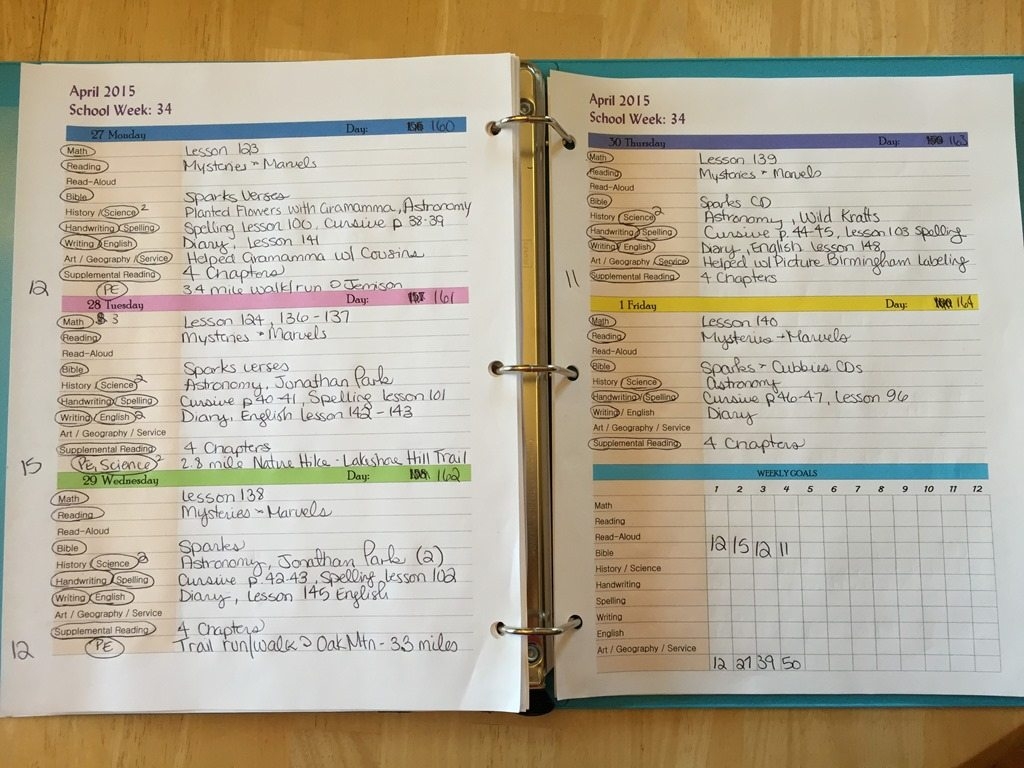 April 2015
School Week: 34
27 Monday Day: 160
Math Lesson 123
Reading Mysteries + Marvels
Read-Aloud
Bible Sparks Verses
History / Science 2 Planted Flowers with Gramamma, Astronomy
Handwriting / Spelling Spelling Lesson 100, Cursive p 38-39
Writing / English Diary, Lesson 141
Art / Geography / Service Helped Gramamma w/ Cousins
Supplemental Reading 4 Chapters
12 PE 3.4 mile walk/run @ Jemison
28 Tuesday Day: 161
Math 3 Lesson 124, 136-137
Reading Mysteries + Marvels
Read-Aloud
Bible Sparks verses
History / Science 2 Astronomy, Jonathan Park
Handwriting / Spelling Cursive p 40-41, Spelling lesson 101
Writing / English 2 Diary, English Lesson 142-143
Art / Geography / Service
Supplemental Reading 4 Chapters
15 PE, Science 2 2.8 mile Nature Hike - Lakeshore Hill Trail
29 Wednesday Day: 162
Math Lesson 138
Reading Mysteries + Marvels
Read-Aloud
Bible Sparks
History / Science 3 Astronomy, Jonathan Park (2)
Handwriting / Spelling Cursive p. 42-43, Spelling lesson 102
Writing / English Diary, Lesson 145 English
Art / Geography / Service
Supplemental Reading 4 Chapters
12 PE Trail run/walk @ Oak Mtn - 3.3 miles
April 2015
School Week: 34
30 Thursday Day: 163
Math Lesson 139
Reading Mysteries + Marvels
Read-Aloud
Bible Sparks CD
History / Science 2 Astronomy, Wild Kratts
Handwriting / Spelling Cursive p. 44-45, Lesson 103 Spelling
Writing / English Diary, English lesson 148
Art / Geography / Service Helped w/ Picture Birmingham Labeling
11 Supplemental Reading 4 Chapters
1 Friday Day: 164
Math Lesson 140
Reading Mysteries + Marvels
Read-Aloud
Bible Sparks + Cubbies CDs
History / Science Astronomy
Handwriting / Spelling Cursive p 46-47, Lesson 96
Writing / English Diary
Art / Geography / Service
Supplemental Reading 4 Chapters
WEEKLY GOALS
1 2 3 4 5 6 7 8 9 10 11 12
Math
Reading
Read-Aloud 12 15 12 11
Bible
History / Science
Handwriting
Spelling
Writing
English
Art / Geography / Service
12 27 39 50